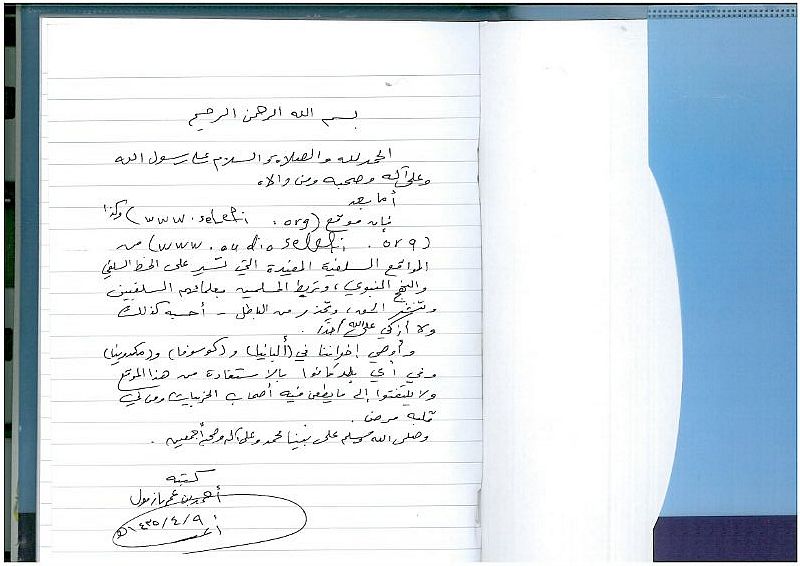 بسم الله الرحمن الرحيم
الحمد لله والصلاة والسلام على رسول الله
وعلى آله وصحبه ومن والاه
أما بعد
فإن موقع (www.selefi.org) وكذا
(www.audioselefi.org) من
المواقع السلفية المفيدة التي تسير على الخط السلفي
والنهج النبوي، وتربط المسلمين بعلمائهم السلفيين
وتنشر الحق، وتحذر من الباطل - أحسبه كذلك
ولا أزكي على الله أحدًا.
وأوصي إخواننا في (ألبانيا) و(كوسوفا) و(مكدونيا)
وفي أي بلد كانوا بالاستفادة من هذا الموقع
ولا يلتفتوا إلى ما يطعن فيه أصحاب الحزبيات ومن في
قلبه مرض.
وصلى الله وسلم على نبينا محمد وعلى آله وصحبه أجمعين.
كتبه
أحمد بن عمر بازمول
١٤٣٥/٤/٩هـ